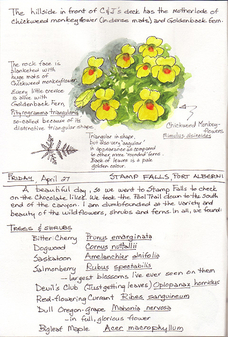 The hillside in front of C & J's deck has the motherlode of
Chickweed monkeyflower (in dense mats) and Goldenback fern.
The rock face is
blanketed with
huge mats of
Chickweed monkeyflower
Every little crevice
is alive with
Goldenback Fern,
Pityrogramma triangularis
so-called because of its
distinctive triangular shape.
Chickweed Monkey-
flowers
Mimulus alsinoides
Triangular in shape,
but also very "angular"
in appearance as compared
to other, more "rounded" ferns.
Back of leaves is a pale
golden colour.
FRIDAY April 27 STAMP FALLS, PORT ALBERNI
A beautiful day, so we went to Stamp Falls to check
on the Chocolate Lilies. We took the Pool Trail down to the South
end of the canyon. I am dumbfounded at the variety and
beauty of the wildflowers, shrubs and ferns. In all, we found:
TREES & SHRUBS
Bitter Cherry Prunus emarginata
Dogwood Cornus nuttallii
Saskatoon Amelanchier alnifolia
Salmonberry Rubus spectabilis
- largest blossoms I've ever seen on them
Devil's Club (Just getting leaves) Oplopanax horridus
Red-flowering Currant Ribes sanguineum
Dull Oregon-grape Mahonia nervosa
- in full, glorious flower
Bigleaf Maple Acer macrophyllum